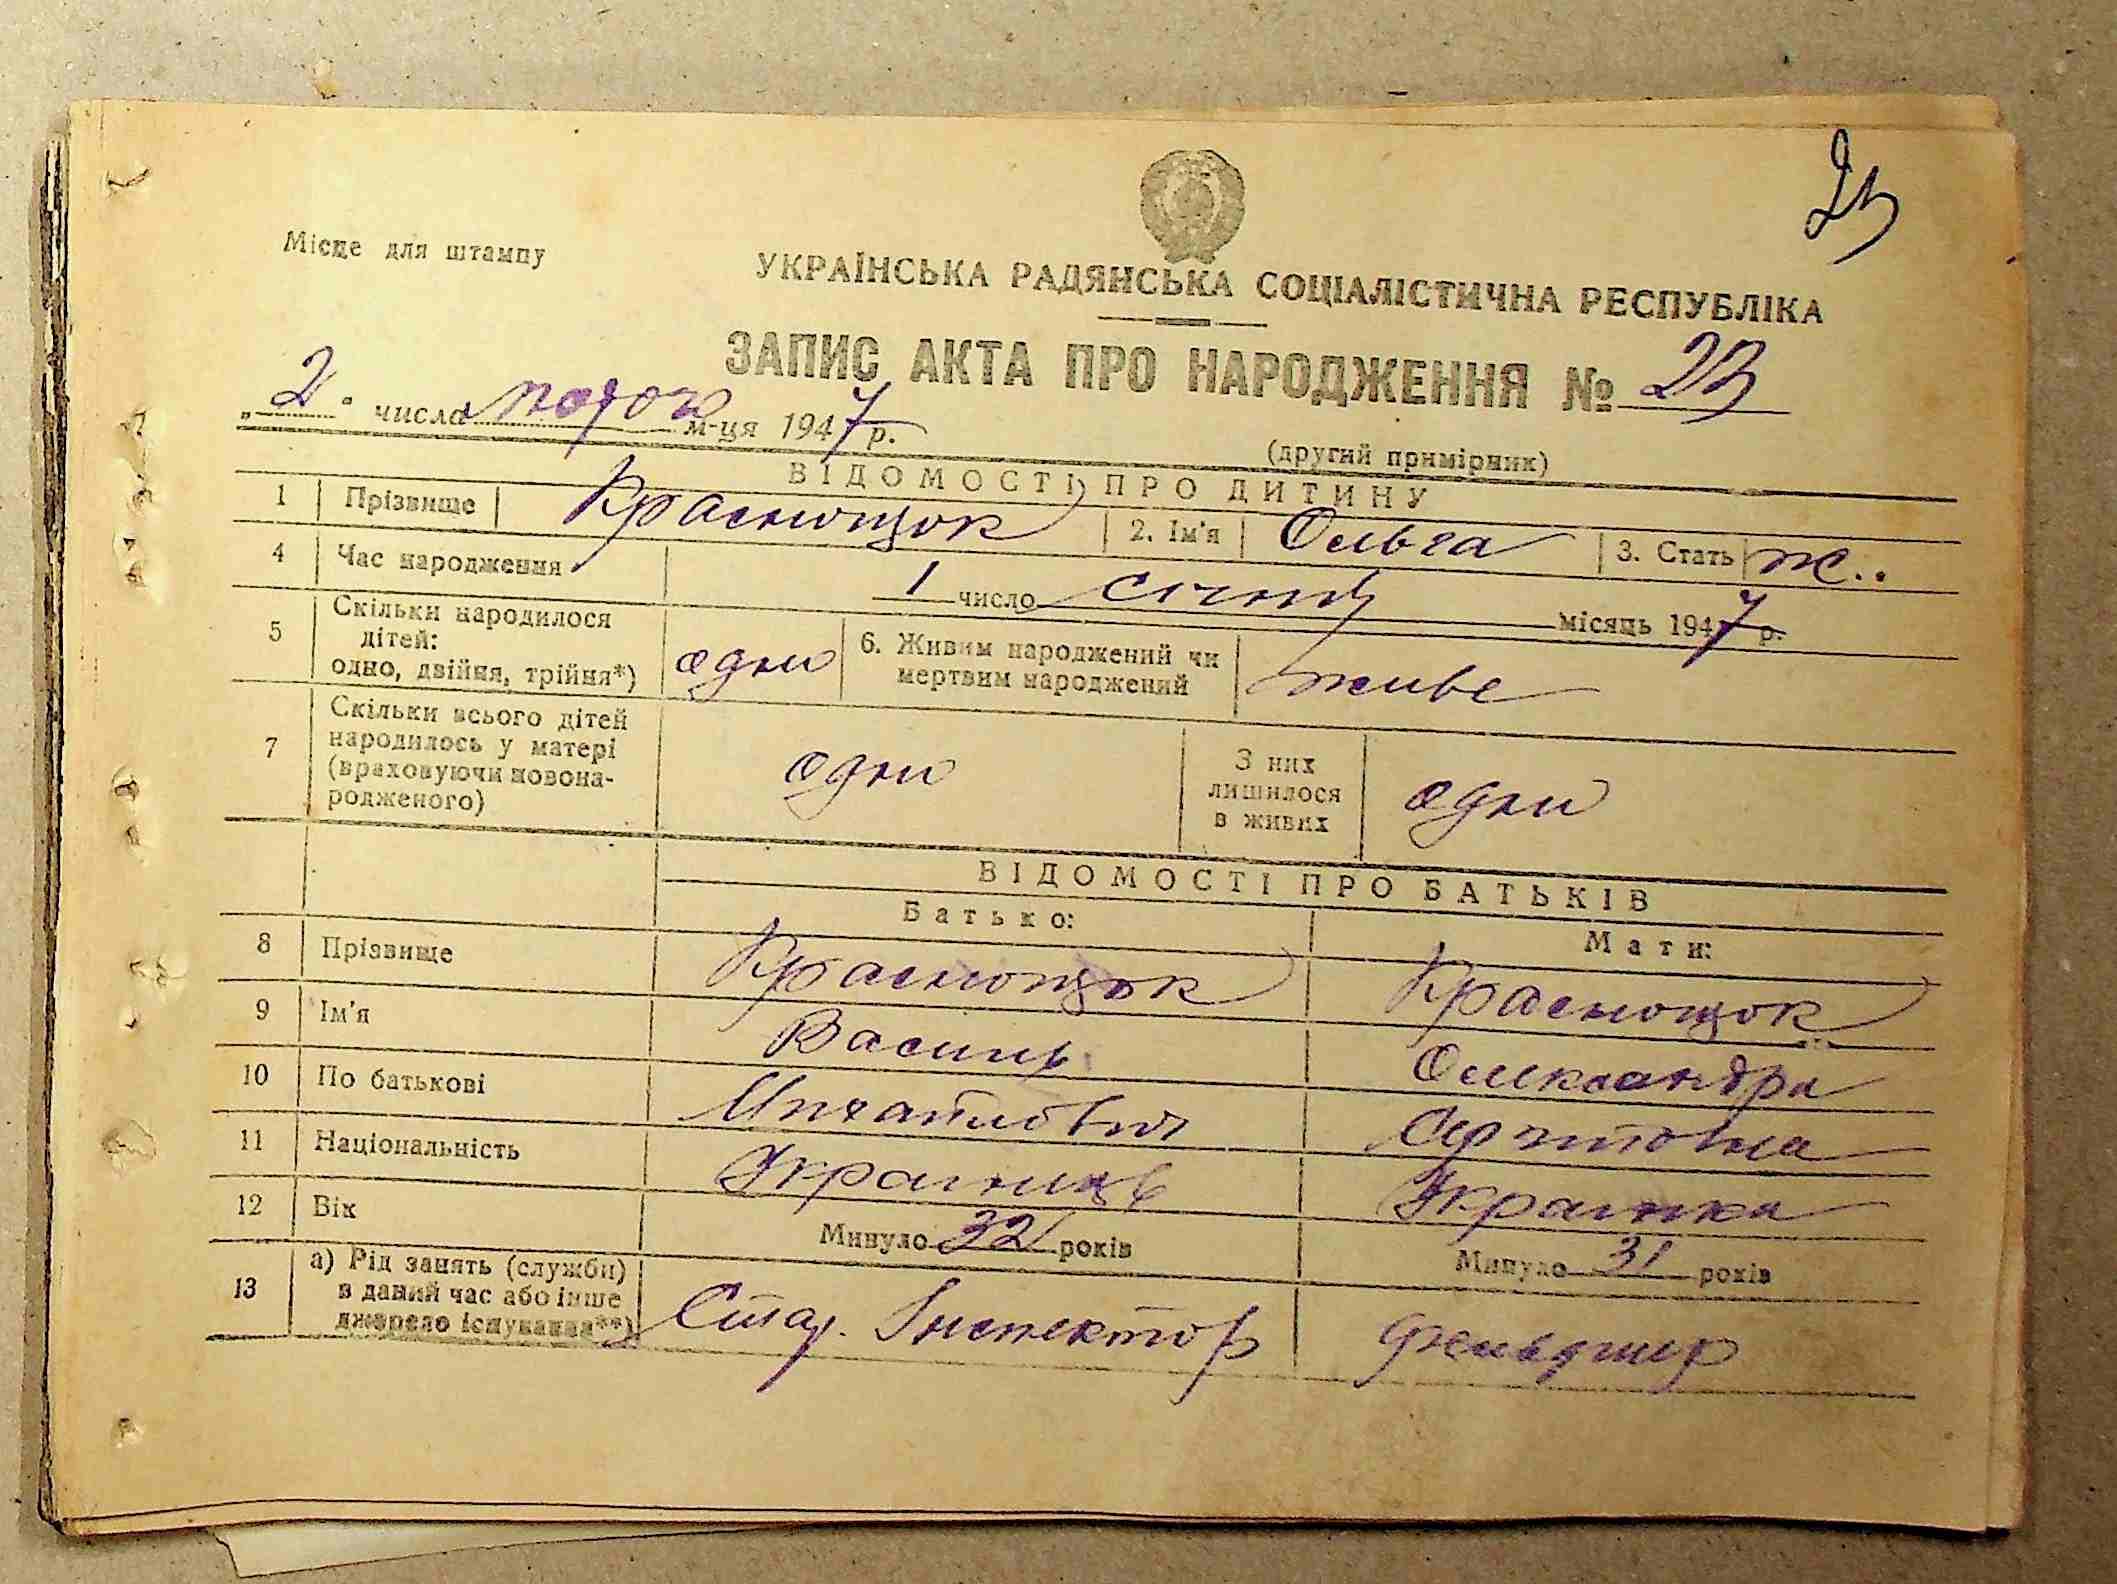 23
Місце для штампу
УКРАЇНСЬКА РАДЯНСЬКА СОЦІАЛІСТИЧНА РЕСПУБЛІКА
ЗАПИС АКТА ПРО НАРОДЖЕННЯ № 23
„2" числа лютого м-ця 1947 р.
(другий примірник)
ВІДОМОСТІ ПРО ДИТИНУ
1 Прізвище Краснощок 2. Ім'я Ольга 3. Стать ж.
4 Час народження 1 число січня місяць 1947 р.
5 Скільки народилося дітей: одно, двійня, трійня*) одно 6. Живим народжений чи мертвим народжений живе
7 Скільки всього дітей народилось у матері (враховуючи новонародженого) одно З них лишилося в живих одно
ВІДОМОСТІ ПРО БАТЬКІВ
Батько: Мати:
8 Прізвище Краснощок Краснощок
9 Ім'я Василь Олександра
10 По батькові Михайлович
11 Національність Українець Українка
12 Вік Минуло 32 років Минуло 31 років
13 а) Рід занять (служби) в даний час або інше джерело існування**) Стар. Інспектор фельдшер